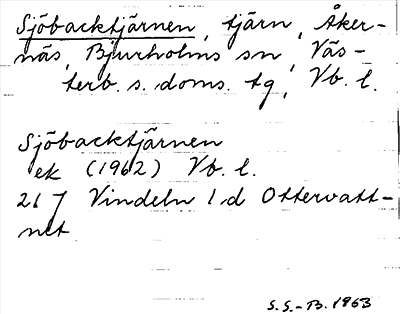 Sjöbacktjärnen, tjärn, Åker-
näs, Bjurholms sn, Väs-
terb. s. doms. tg, Vb. l.
Sjöbacktjärnen
ek (1962) Vb. l.
217 Vindeln 1d Ottervatt-
net
S.S.-B. 1963